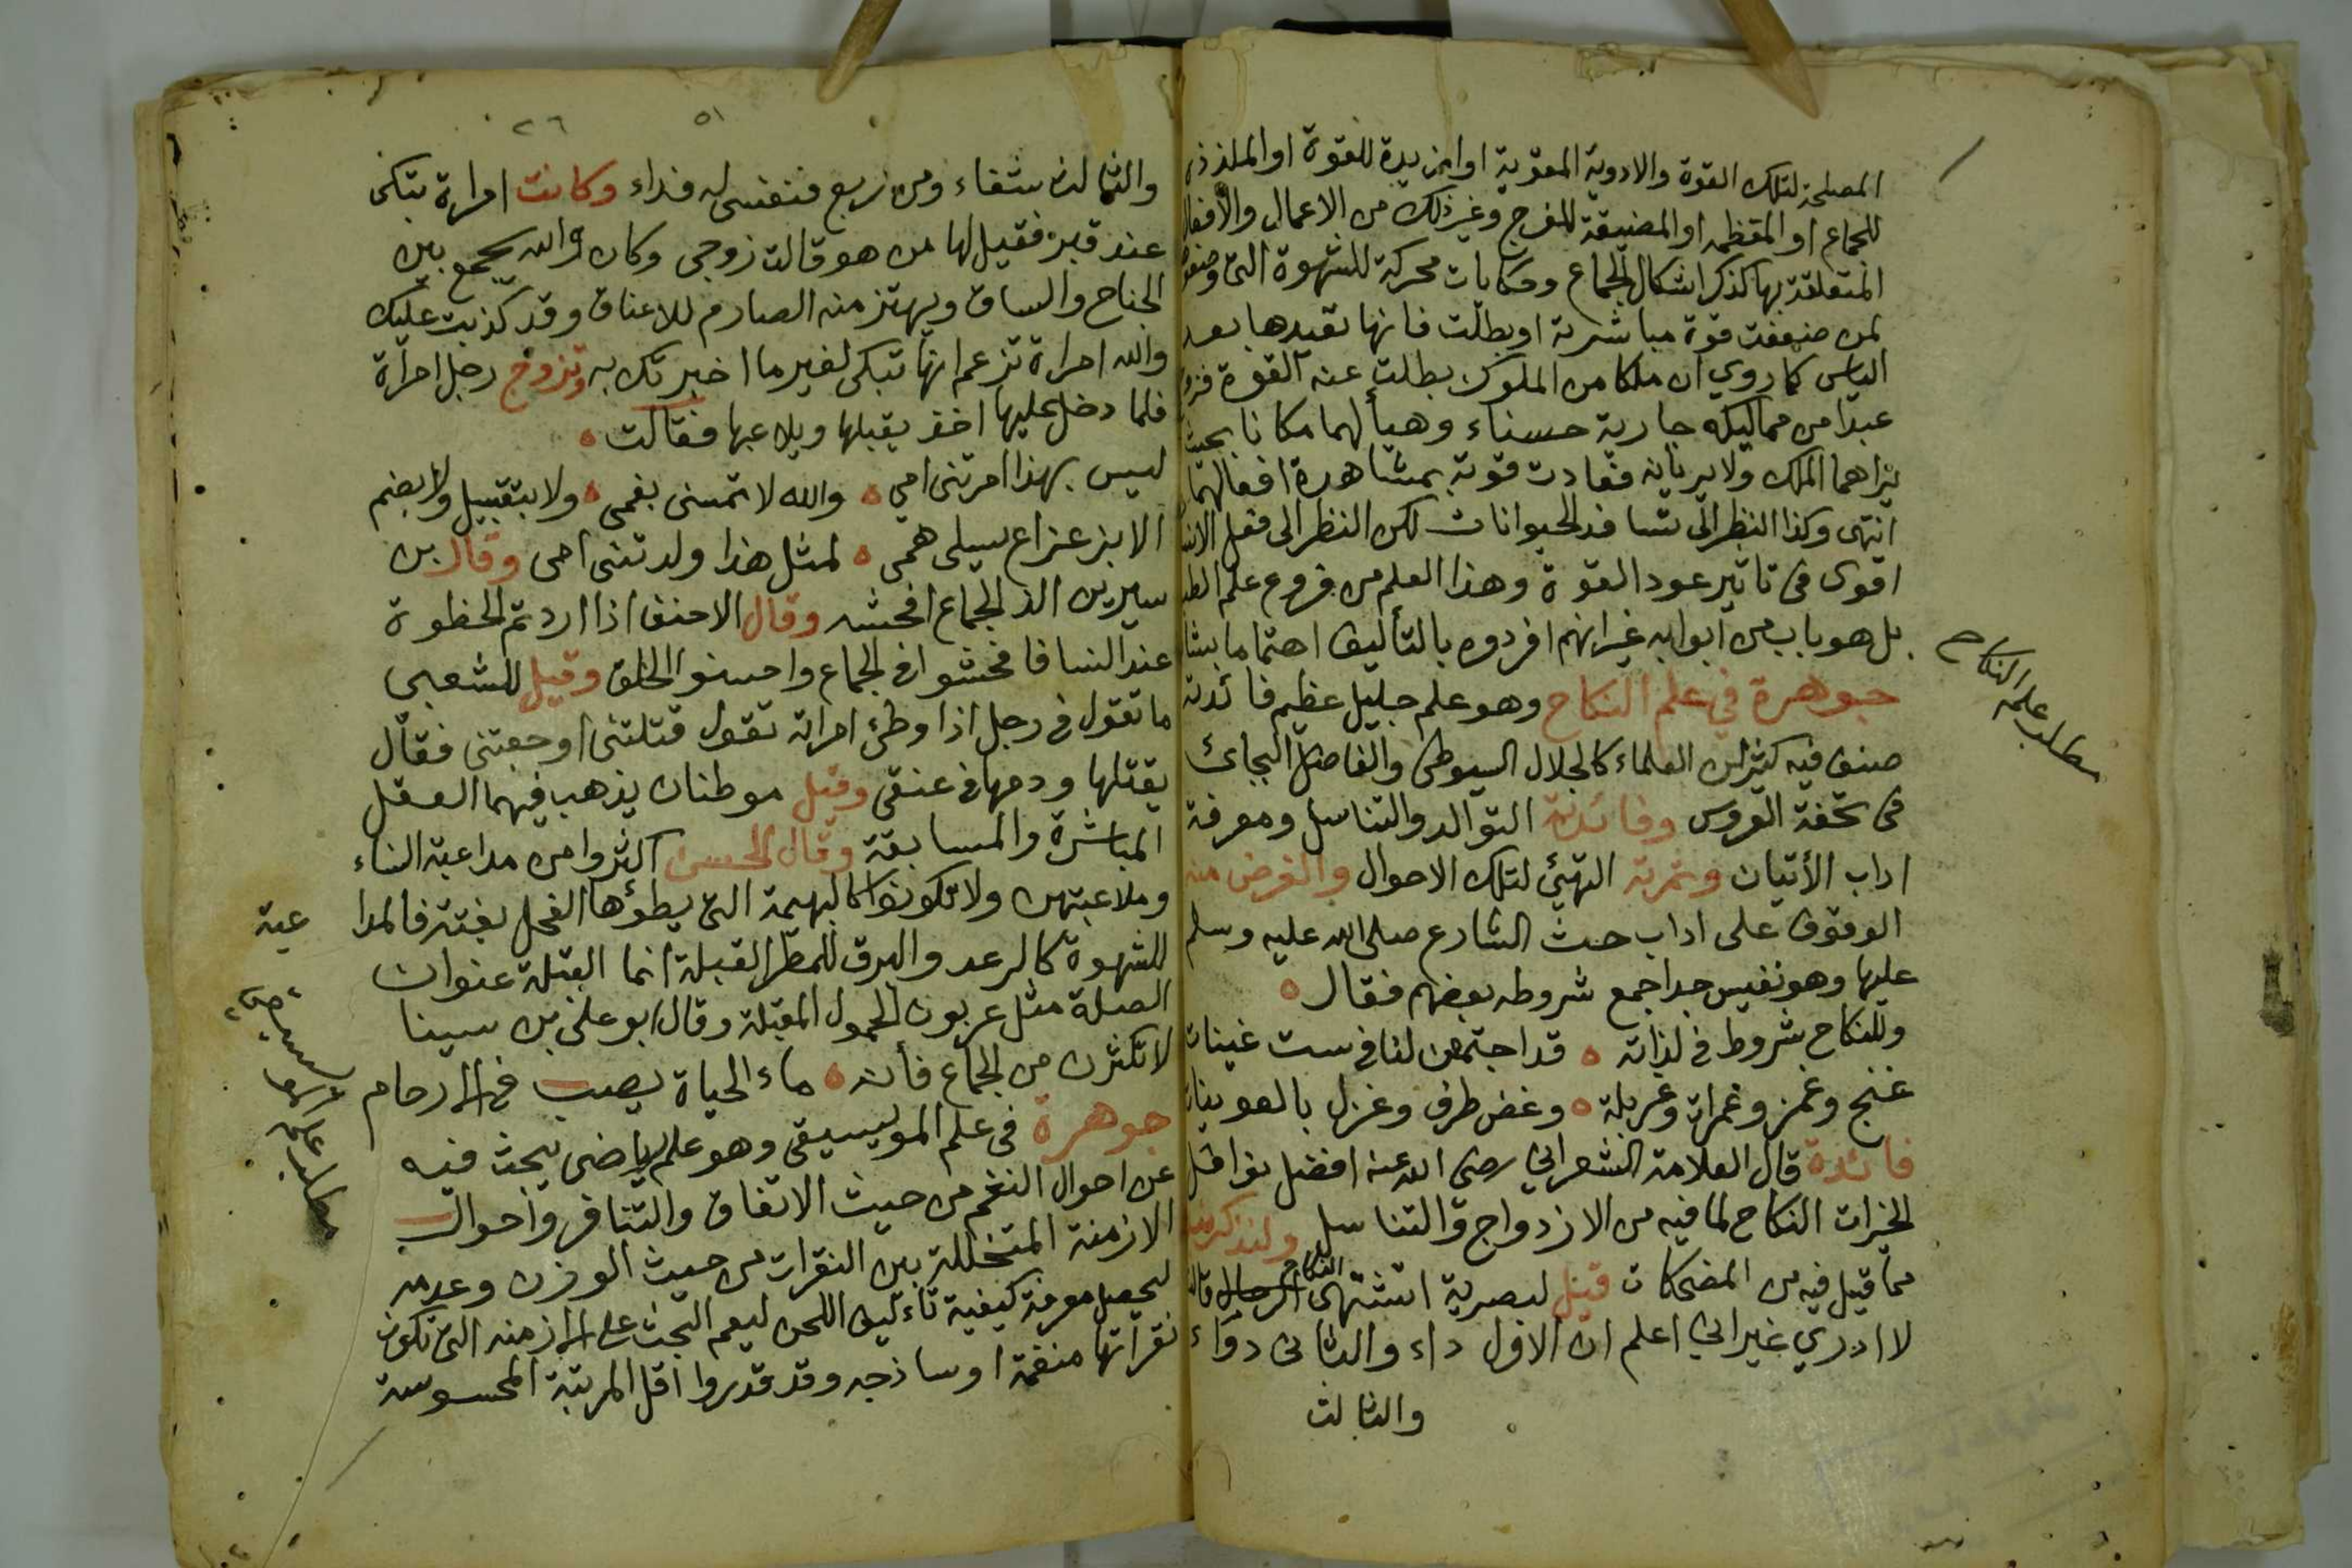 المصلحة لتلك القوة والادوية المقوية او المزيدة للقوة او الملذذة
للجماع او المعظمه او المضيقة للفرج وغير ذلك من الاعمال والأفعال
المتعلقة بها كذكر اشكال الجماع وحكايات محركة للشهوة التي وضعوها
لمن ضعفت قوة مباشرته او بطلت فانها تعيدها بعد
الياس كما روي ان ملكا من الملوك بطلت عنه القوة فزوج
عبدا من مماليكه جارية حسناء وهيأ لهما مكانا بحيث
يراهما الملك ولا يريانه فعادت قوته بمشاهدة افعالهما
انتهى وكذا النظر الى تسافد الحيوانات لكن النظر الى فعل الانسان
اقوى في تاثير عود القوة وهذا العلم من فروع علم الطب
بل هو باب من ابوابه غير انهم افردوه بالتأليف اهتماما بشانه
جوهرة في علم النكاح وهو علم جليل عظيم فائدته
صنف فيه كثير من العلماء كالجلال السيوطي والفاضل البجائي
في تحفة العروس وفائدته التوالد والتناسل ومعرفة
اداب الأتيان وثمرته التهيئ لتلك الاحوال والغرض منه
الوقوف على اداب حث الشارع صلى الله عليه وسلم
عليها وهو نفيس جدا جمع شروطه بعضهم فقال
وللنكاح شروط في لذاته قد اجتمعن لنا في ست غينات
غنج وغمز وغمرات وغربلة وغض طرف وغزل بالعوينات
فائدة قال العلامة الشعراني رضى الله عنه افضل نوافل
الخيرات النكاح لما فيه من الازدواج والتناسل ولنذكر نبذا
مما قيل فيه من المضحكات قيل لبصرية اتشتهى النكاح الرجال قالت
لا ادري غير اني اعلم ان الاول داء والثاني دواء
والثالث
مطلب علم النكاح
٥١ ٢٦
والثالث شفاء ومن ربع فنفسي له فداء وكانت امراة تبكى
عند قبر فقيل لها من هو قالت زوجى وكان والله يجمع بين
الجناح والساق ويهتز منه الصارم للاعناق وقد كذبت عليك
والله امراة تزعم انها تبكى لغير ما اخبرتك به وتزوج رجل امرأة
فلما دخل عليها اخذ يقبلها ويلاعبها فقالت
ليس بهذا امرتنى امي والله لا تمسنى بفمى ولا بتقبيل ولا بضم
الا بزعزاع يسلى همى لمثل هذا ولدتنى امى وقال بن
سيرين الذ الجماع افحشه وقال الاحنف اذا اردتم الحظوة
عند النسا فافحشوا في الجماع واحسنوا الخلق وقيل للشعبى
ما تقول في رجل اذا وطئ امراته تقول قتلتنى اوجعتنى فقال
يقتلها ودمها في عنقى وقيل موطنان يذهب فيهما العقل
المباشرة والمسابقة وقال الحسن اكثروا من مداعبة النساء
وملاعبتهن ولا تكونوا كالبهيمة التي يطؤها الفحل بغتة فالمدا
عبة
للشهوة كالرعد والبرق للمطر القبلة انما القبلة عنوان
الصلة مثل عربون الحمول المقبلة وقال ابو على بن سينا
لا تكثرن من الجماع فأنه ماء الحياة يصب في الارحام
جوهرة في علم الموليسيقى وهو علم رياضى يبحث فيه
عن احوال النغم من حيث الاتفاق والتنافر واحوال
الازمنة المتخللة بين النقرات من حيث الوزن وعدمه
ليحصل معرفة كيفية تاءليف اللحن ليعم البحث على الازمنه التي تكون
نقراتها منغمة او ساذجه وقد قدروا اقل المرتبة المحسوسة
مطلب علم